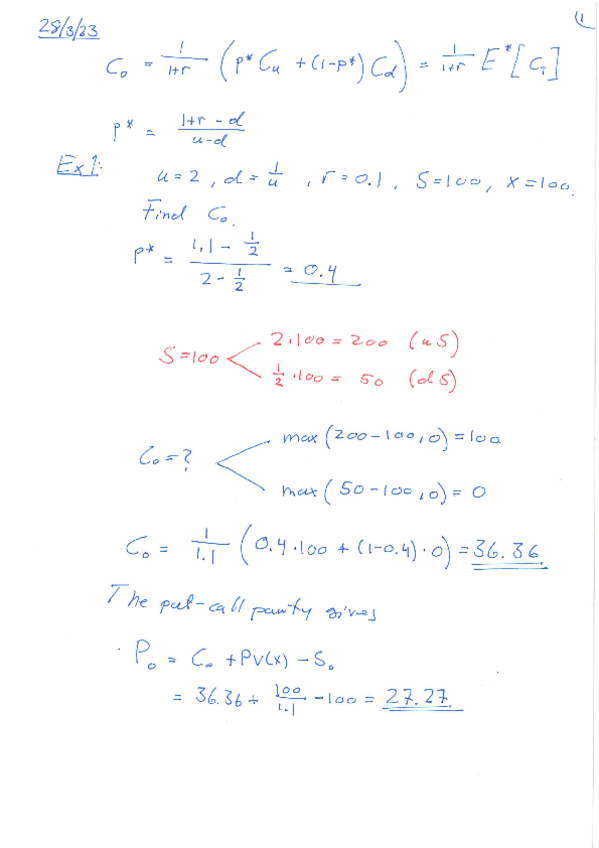 28/3/23
1
C₀ = 1/(1+r) (p* Cu + (1-p*) Cd) = 1/(1+r) E*[C_T]
p* = (1+r-d)/(u-d)
Ex1:
u=2, d=1/u, r=0.1, S=100, X=100.
Find C₀.
p* = (1,1 - 1/2)/(2 - 1/2) = 0.4
2·100 = 200 (uS)
S=100
1/2·100 = 50 (dS)
max(200-100,0)=100
C₀=?
max(50-100,0)=0
C₀ = 1/1.1 (0.4·100 + (1-0.4)·0) = 36.36
The put-call parity gives
P₀ = C₀ + PV(X) - S₀
= 36.36 + 100/1.1 - 100 = 27.27